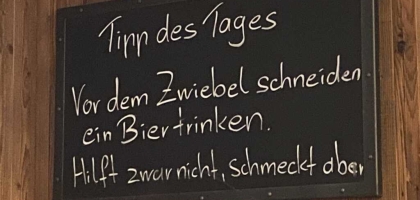 Tipp des Tages
Vor dem Zwiebel schneiden
ein Bier trinken.
Hilft zwar nicht, schmeckt aber